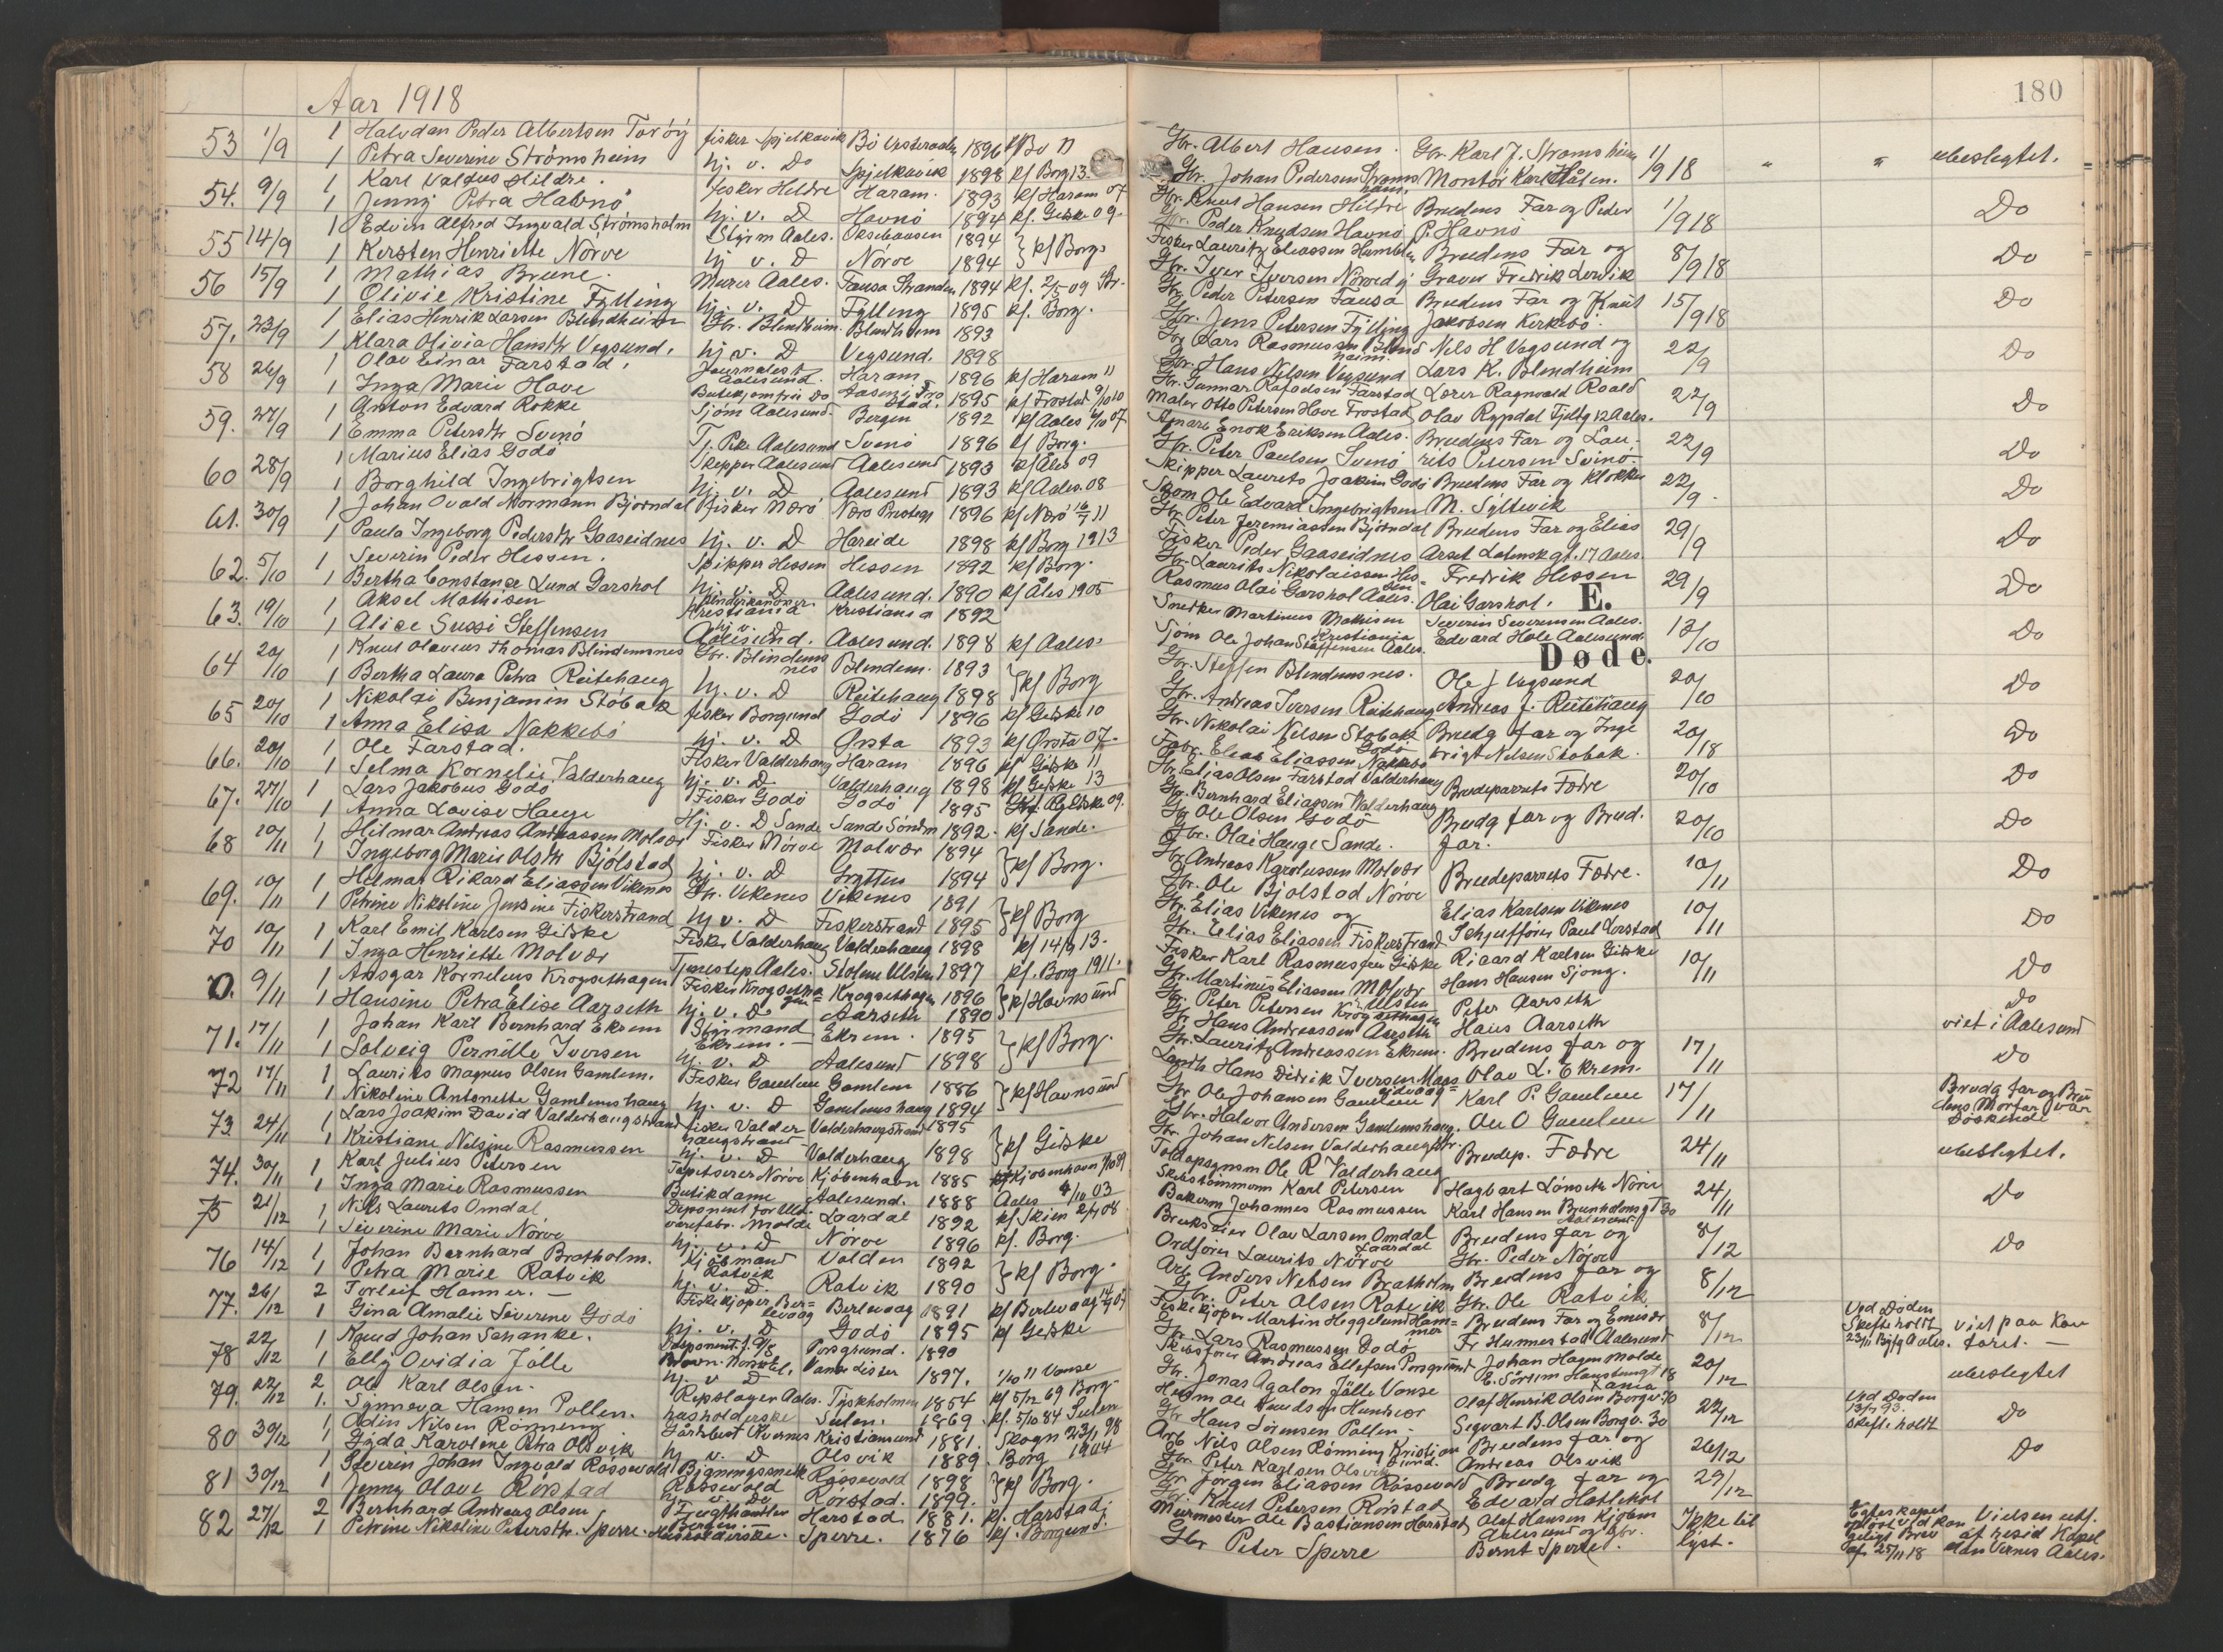 Aar 1918
180
53 1/9 1 Halvdan Peder Albertsen Torøy fisker Spjelkavik Bö Vesteraalen 1896
1 Petra Severine Strömsheim hj. v. Do Spjelkavik 1898 kf Borg 13
54. 9/9 1 Karl Valdus Hildre. fisker Hildre Haram. 1893 kf Haram 07
1 Jenny Petra Havnö hj. v. D Havnö 1894 kf. Giske 09.
55 14/9 1 Edvin Alfred Ingvald Strömsholm Styrm Aales. 1894 } kf Borg.
1 Kersten Henriette Nörve hj v. D Nörve 1894
56 15/9 1 Mathias Brune. Murer Aales. Fausa Stranden 1894 kf.
1 Olivie Kristine Fylling hj. v. D Fylling 1895 kf. Borg.
57. 23/9 1 Elias Henrik Larsen Blindheim Gbr. Blindheim. Blindheim 1893
1 Klara Olivia Hansdtr Vegsund. hj v. D Vegsund. 1898
58 26/9 1 Olav Einar Farstad. Journalist Aalesund. Haram 1896 kf Haram 11
1 Inga Marie Hove 1895 kf Frostad 9/10 10
59. 27/9 1 Anton Edvard Rokke Sjöm Aalesund. Bergen 1892 kf Aales 07
1 Emma Petersdtr Svinö Tj. Pike Aalesund Svinö 1896 kf Borg.
60 28/9 1 Marius Elias Godö Skipper Aalesund Aalesund 1893 kf Ales 09
1 Borghild Ingebrigtsen hj. v. D Aalesund 1893 kf Aales. 08
61. 30/9 1 Johan Ovald Normann Björndal fisker Nærö Nærö Prestegj 1896 kf Nærö 11
1 Paula Ingeborg Pedersdtr Gaaseidnes hj. v. D Hareide 1898 kf Borg 1913
62. 5/10 1 Severin Peder Hessen. Skipper Hessen Hessen 1892 kf Borg.
1 Bertha Constance Lund Garshol hj. v. D Aalesund. 1890 kf Ales 1905
63. 19/10 1 Aksel Mathisen Kristiania Kristiania 1892
1 Alice Sussi Steffensen hj. v. D Aalesund. Aalesund. 1898 kf Aales.
64 20/10 1 Knut Olavus Thomas Blindemsnes Gbr. Blindemsnes Blindem. 1893 } kf Borg
1 Bertha Laura Petra Reitehaug hj. v. D Reitehaug 1898
65 20/10 1 Nikolai Benjamin Stöbak fisker Borgund Godö 1896 kf Giske 10
1 Anna Elisa Nakkebö hj. v. D Ørsta 1893 kf Ørsta 07.
66. 20/10 1 Ole Farstad. Fisker Valderhaug Haram 1896 kf Giske 11
1 Selma Kornelie Valderhaug hj. v. D Valderhaug 1898 kf Giske 13
67. 27/10 1 Lars Jakobus Godö Fisker Godö Godö 1895 kf Giske 09.
1 Anna Lovise Hauge Hj. v. D Sande Sande Söndm 1892. kf Sande.
68 10/11 1 Hilmar Andreas Andreassen Molvær Fisker Nörve Molvær 1894 } kf Borg.
1 Ingeborg Marie Olsdtr Bjölstad hj. v. D Grytten 1894
69. 10/11 1 Hilmar Rikard Eliassen Vikenes Gbr. Vikenes Vikenes 1891 } kf Borg
1 Petrine Nikoline Jensine Fiskerstrand hj v. D Fiskerstrand 1895
70 10/11 1 Karl Emil Karlsen Giske Fisker Valderhaug Valderhaug 1898 kf 14/9 13.
1 Inga Henriette Molvær Tjenestep Aales. Stolene Ulstein 1897 kf. Borg 1911.
0. 9/11 1 Ansgar Kornelius Krogsethagen Fisker Krogsethagen Krogsethagen 1896 } kf Havnsund
1 Hansine Petra Elise Aarseth hj. v. D. Aarseth 1890
71. 17/11 1 Johan Karl Bernhard Ekrem Styrmand Ekrem. Ekrem. 1895 } kf Borg.
1 Solveig Pernille Iversen hj. v. D Aalesund 1898
72 17/11 1 Laurits Magnus Olsen Gamlem. Fisker Gamlem Gamlem 1886 } kf Havnsund
1 Nikoline Antonette Gamlemshaug hj. v. D Gamlemshaug 1894
73. 24/11 1 Lars Joakim David Valderhaugstrand fisker Valderhaugstrand Valderhaugstrand 1895 } kf Giske
1 Kristiane Nilsine Rasmussen hj. v. D Valderhaug 1898
74. 30/11 1 Karl Julius Petersen Tapetserer Nörve Kjöbenhavn 1885 kf Kjöbenhavn
1 Inga Marie Rasmussen Butikdame Aalesund. 1888 Aales 4/10 03
75 21/12 1 Nils Laurits Omdal Disponent for Uldvarefabr. Molde Laardal 1892 kf Skien 08
1 Severine Marie Nörve hj. v. D Nörve 1896 kf. Borg.
76 14/12 1 Johan Bernhard Bratholm. Ratvik Volden 1892 } kf Borg.
1 Petra Marie Ratvik hj. v. D. Ratvik 1890
77. 26/12 2 Torleif Hamer. Fiskekjöper Berlevaag Berlevaag 1891 kf Berlevaag
1 Gina Amalie Severine Godö hj. v. D Godö 1895 kf Giske
78 22/12 1 Knud Johan Schanke. Disponent Porsgrund. 1890
1 Elly Ovidia Jölle hj. v. D Vanse Lister 1897. 1/10 11 Vanse
79. 22/12 2 Ole Karl Olsen. Repslager Aales. Tyskholmen 1854 kf 5/12 69 Borg.
1. Synneva Hansen Pollen. husholderske Sulen. 1869. kf. 5/10 84 Sulen
80 30/12 1 Odin Nilsen Rönning Kristiansund 1881. Skogn 23/1 98
1 Gyda Karoline Petra Olsvik hj v. D Olsvik 1889. Borg 1904
81 30/12 1 Severin Johan Ingvald Rössevold Rössevold Rössevold 1898 } kf Borg.
1 Jenny Olave Rörstad hj. v. Do Rörstad. 1899.
82 27/12 2 Bernhard Andreas Olsen Bergen. Harstad. 1881. kf. Harstad
1 Petrine Nikoline Petersdtr. Sperre. Husholderske. Sperre. 1876 kf. Borgund.
Gbr. Albert Hansen. Gbr. Karl J. Strömsheim 1/9 18 " " ubeslegtet.
Gbr. Johan Pedersen Strömsheim. Montör Karl Hålen.
Gbr. Knut Hansen Hildre Brudens Far og Peder 1/9 18 Do
Gbr. Peder Knudsen Havnö P. Havnö
Fisker Lauritz Eliassen Brudens Far og 8/9 18 Do
Gbr. Iver Iversen Nörve Graver Fredrik Lervik
Gbr. Peder Petersen Fausa Brudens Far og Knut 15/9 18 Do
Gbr. Jens Petersen Fylling Jakobsen Kirkebö.
Gbr Lars Rasmussen Blindheim. Nils H Vegsund og 22/9 Do
Gbr. Hans Nilsen Vegsund Lars K. Blindheim
Gbr. Gunnar Farstad Lærer Ragnvald Roald 22/9 Do
Maler Otto Petersen Hove Frostad Olav Rypdal Fjeldg 12 Aales.
Enok Eriksen Aales. Brudens Far og Lau- 22/9 Do
Gbr. Peter Paulsen Svinö rits Petersen Svinö.
Skipper Laurits Joakim Godö Brudens Far og Klokker 22/9. Do
Ole Edvard Ingebrigtsen M. Syltevik
Gbr. Peter Jeremiassen Björndal Brudens Far og Elias 29/9 Do
Fisker Peder Gaaseidnes Arset 17 Aales.
Gbr. Laurits Nikolaissen Hessen Fredrik Hessen 29/9 Do
Rasmus Olai Garshol Aales. Olai Garshol. E.
Snedker Martinus Mathisen Kristiania Severin Severinsen Aales. 13/10 Do
Sjöm Ole Johan Steffensen Aales. Edvard Hole Aalesund. Døde.
Gbr. Steffen Blindemsnes. Ole J Vegsund 20/10 Do
Gbr. Andreas Iversen Reitehaug Andreas J. Reitehaug
Gbr. Nikolai Nilsen Stöbak Godö Brudg far og Inge 20/18 Do
Elias Eliassen Nakkebö brigt Nilsen Stöbak.
Gbr. Elias Olsen Farstad Valderhaug Brudeparrets Fædre 20/10 Do
Gbr. Bernhard Eliassen Valderhaug
Gbr Ole Olsen Godö Brudg far og Brud. 20/10 Do
Gbr. Olai Hauge Sande. far.
Gbr. Andreas Karolussen Molvær Brudeparrets Fædre. 10/11 Do
Gbr. Ole Bjölstad Nörve
Gbr. Elias Vikenes og Elias Karlsen Vikenes 10/11 Do
Gbr. Elias Eliassen Fiskerstrand Schjufför Paul Verstad
Fisker Karl Rasmussen Giske Ricard Karlsen Giske 10/11 Do
Gbr. Martinus Eliassen Molvær Ulstein Hans Hansen Sjong.
Gbr. Peter Petersen Krogsethagen Peter Aarseth Do
Gbr. Hans Andreassen Aarseth Hans Aarseth viet i Aalesund
Gbr. Lauritz Andreassen Ekrem. Brudens far og 17/11 Do
Hans Didrik Iversen Olav L. Ekrem.
Gbr Ole Johansen Gamlem Karl P. Gamlem 17/11 Brudg far og Bru
Gbr. Halvor Andersen Gamlemshaug. Ole O Gamlem dens Morfar var Söskende
Gbr. Johan Nilsen Valderhaugstr. Brudep. Fædre 24/11 ubeslegtet.
Toldopsynsm Ole R Valderhaug
Skibstömmerm Karl Petersen Hagbart Lönseth Nörve 24/11 Do
Bakerm Johannes Rasmussen Karl Hansen Brunholmsgt 30 Aalesund
Brukseier Olav Larsen Omdal Laardal Brudens far og 8/12 Do
Ordförer Laurits Nörve Gbr. Peder Nörve
Arb Anders Nilsen Bratholm Brudens far og 8/12
Gbr. Peter Olsen Ratvik Gbr. Ole Ratvik
Fiskekjöper Martin Heggelund Hammer Brudens Far og 8/12 Ved Döden Skifte holdt viet paa Kon
Gbr. Lars Rasmussen Godö Fr Hunnestad Aalesund 23/11 Byfg Aales. toret.
Skibsförer Andreas Ellefsen Porsgrund Johan Hagen Molde 20/12 ubeslegtet
Gbr. Jonas Agalon Jölle Vanse E. Sörum
Ole Knudsen Olaf Henrik Olsen Borgv. 30 22/12 Ved Döden 13/7 93. Do
Gbr Hans Simensen Pollen. Segvart B. Olsen Borgv. 30 skifte holdt
Arb Nils Olsen Rönning Kristiansund. Brudens far og 26/12 Do
Gbr. Peter Karlsen Olsvik Andreas Olsvik
Gbr Jörgen Eliassen Rössevold Brudg far og 29/12
Gbr. Knut Petersen Rörstad Edvard Hatlehol
Murmester Ole Bastiansen Harstad Olaf Hansen Kjöbm Ikke til Egteskapet oplöst ved kon Vielsen utf.
Gbr Peter Sperre Aalesund og Gbr. Bernt Sperre. lyst. geligt Brev af 25/11 18 af resid Kapel lan Vernes Aales.